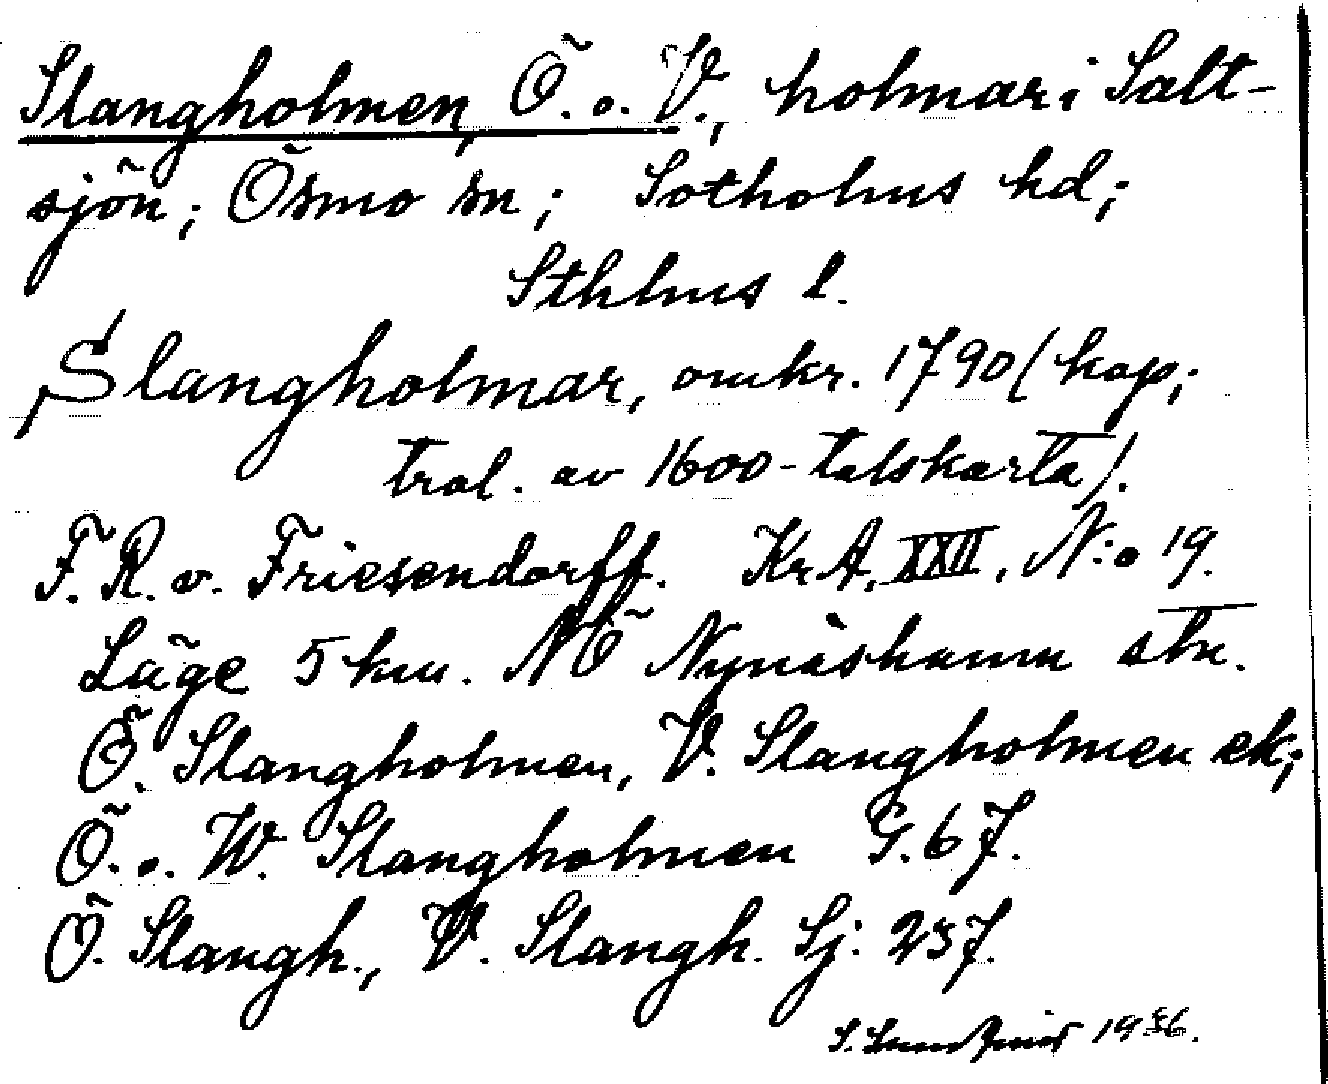 Slangholmen, Ö. o. V., holmar i Salt-
sjön; Ösmo sn; Sotholms hd;
Sthlms l.
Slangholmar, omkr. 1790 (kop;
tral. av 1600-talskarta).
F. R. v. Friesendorff. KrA, XXII, N:o 19.
Läge 5 km. NÖ Nynäshamn stn.
Ö. Slangholmen, V. Slangholmen ek;
Ö. o. W. Slangholmen G. 67.
Ö. Slangh., V. Slangh. Sj: 237.
S. 1936.